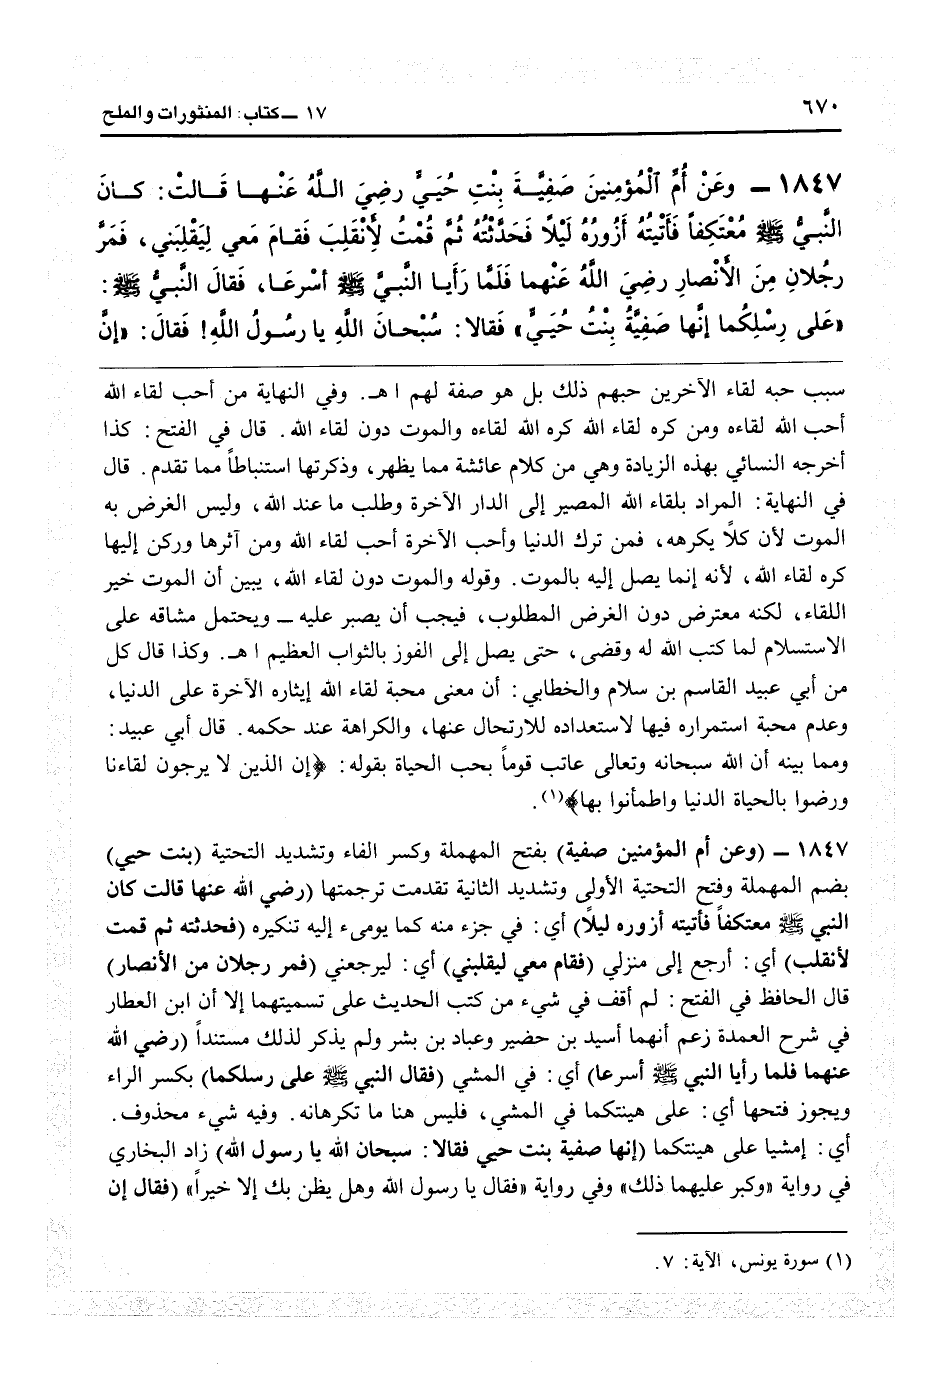 ٦٧٠
١٧ ــ كتاب: المنثورات والملح
١٨٤٧ ــ وعَنْ أُمِّ الْمُؤْمِنِينَ صَفِيَّةَ بِنْتِ حُيَيٍّ رضِيَ اللَّهُ عَنْهـا قَـالتْ: كـانَ
النَّبيُّ ﷺ مُعْتَكِفاً فَأَتيْتُهُ أَزُورُهُ لَيْلًا فَحَدَّثْتُهُ ثُمَّ قُمْتُ لأَنْقَلِبَ فَقـامَ مَعي لِيَقْلِبَني، فَمَرَّ
رجُلانِ مِنَ الأَنْصارِ رضِيَ اللَّهُ عَنْهما فَلَمَّا رَأَيـا النَّبيَّ ﷺ أسْرعَـا، فَقالَ النَّبيُّ ﷺ:
«عَلى رِسْلِكُما إنَّها صَفِيَّةُ بِنْتُ حُيَيٍّ» فَقالا: سُبْحـانَ اللَّهِ يا رسُولُ اللَّهِ! فَقالَ: «إنَّ
سبب حبه لقاء الآخرين حبهم ذلك بل هو صفة لهم ا هـ. وفي النهاية من أحب لقاء الله
أحب الله لقاءه ومن كره لقاء الله كره الله لقاءه والموت دون لقاء الله. قال في الفتح: كذا
أخرجه النسائي بهذه الزيادة وهي من كلام عائشة مما يظهر، وذكرتها استنباطاً مما تقدم. قال
في النهاية: المراد بلقاء الله المصير إلى الدار الآخرة وطلب ما عند الله، وليس الغرض به
الموت لأن كلاً يكرهه، فمن ترك الدنيا وأحب الآخرة أحب لقاء الله ومن آثرها وركن إليها
كره لقاء الله، لأنه إنما يصل إليه بالموت. وقوله والموت دون لقاء الله، يبين أن الموت خير
اللقاء، لكنه معترض دون الغرض المطلوب، فيجب أن يصبر عليه ــ ويحتمل مشاقه على
الاستسلام لما كتب الله له وقضى، حتى يصل إلى الفوز بالثواب العظيم ا هـ. وكذا قال كل
من أبي عبيد القاسم بن سلام والخطابي: أن معنى محبة لقاء الله إيثاره الآخرة على الدنيا،
وعدم محبة استمراره فيها لاستعداده للارتحال عنها، والكراهة عند حكمه. قال أبي عبيد:
ومما بينه أن الله سبحانه وتعالى عاتب قوماً بحب الحياة بقوله: ﴿إن الذين لا يرجون لقاءنا
ورضوا بالحياة الدنيا واطمأنوا بها﴾(١).
١٨٤٧ ــ (وعن أم المؤمنين صفية) بفتح المهملة وكسر الفاء وتشديد التحتية (بنت حيي)
بضم المهملة وفتح التحتية الأولى وتشديد الثانية تقدمت ترجمتها (رضي الله عنها قالت كان
النبي ﷺ معتكفاً فأتيته أزوره ليلاً) أي: في جزء منه كما يومىء إليه تنكيره (فحدثته ثم قمت
لأنقلب) أي: أرجع إلى منزلي (فقام معي ليقلبني) أي: ليرجعني (فمر رجلان من الأنصار)
قال الحافظ في الفتح: لم أقف في شيء من كتب الحديث على تسميتهما إلا أن ابن العطار
في شرح العمدة زعم أنهما أسيد بن حضير وعباد بن بشر ولم يذكر لذلك مستنداً (رضي الله
عنهما فلما رأيا النبي ﷺ أسرعا) أي: في المشي (فقال النبي ﷺ على رسلكما) بكسر الراء
ويجوز فتحها أي: على هينتكما في المشي، فليس هنا ما تكرهانه. وفيه شيء محذوف.
أي: إمشيا على هينتكما (إنها صفية بنت حيي فقالا: سبحان الله يا رسول الله) زاد البخاري
في رواية «وكبر عليهما ذلك» وفي رواية «فقال يا رسول الله وهل يظن بك إلا خيراً» (فقال إن
(١) سورة يونس، الآية: ٧.